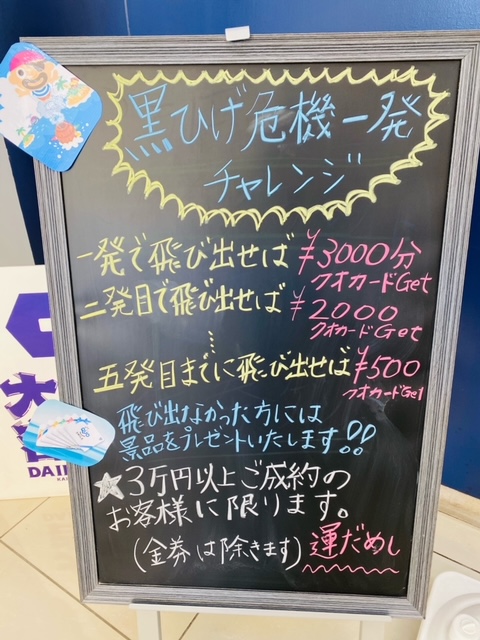 黒ひげ危機一発
チャレンジ
一発で飛び出せば ¥3000分
クオカードGet
二発目で飛び出せば ¥2000
クオカードGet
⋮
五発目までに飛び出せば ¥500
クオカードGet
飛び出なかった方には
景品をプレゼントいたします!!
★3万円以上ご成約の
お客様に限ります。
(金券は除きます) 運だめし
大
DAI